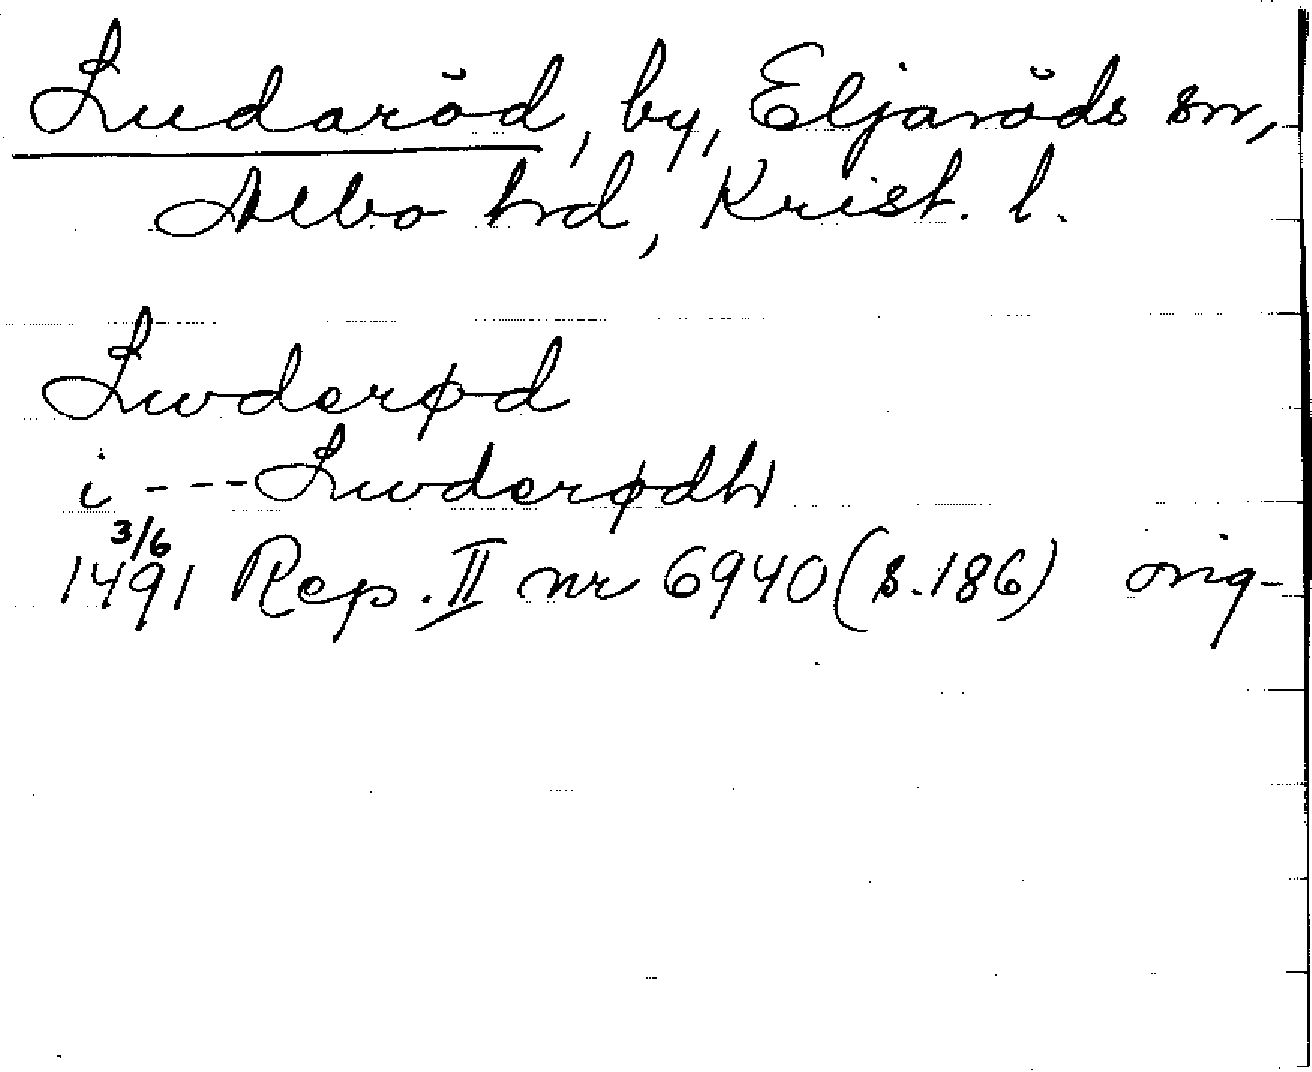 Ludaröd, by, Eljaröds sn,
Albo hd, Krist. l.
Lwderød
i --- Lwderødh
3/6
1491 Rep. II nr 6940 (s. 186) orig-